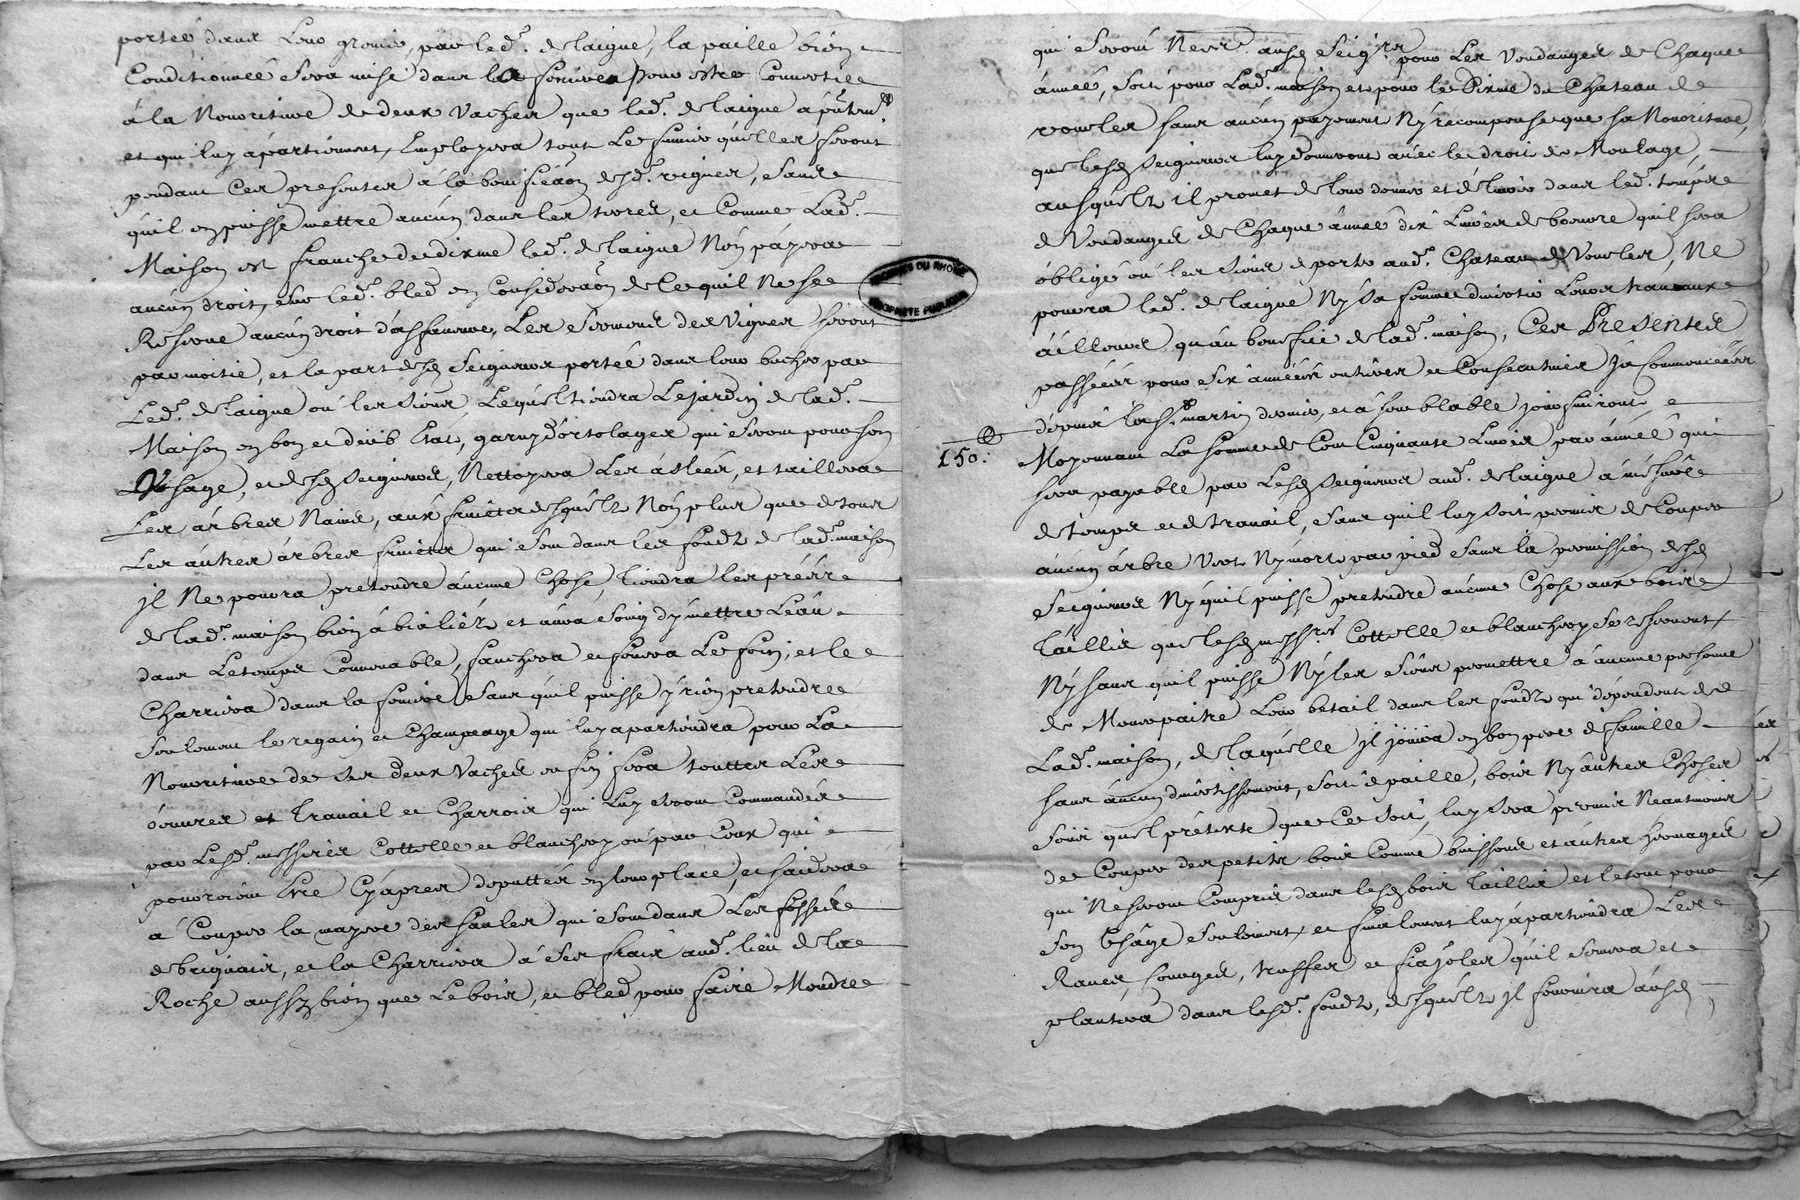 portée dans leur grenier, par led.t delaigue, la paille bien
Conditionnée sera mise dans la feniere pour estre Convertie
à la Nourriture de deux Vaches que led.t delaigue a
et qui luy apartiennent, Employera tout le fumier qu'elles feront
pendant Ces presentes à la bonificaon desd. vignes, sans
qu'il en puisse mettre aucun dans les terres, et Comme Lad.e
Maison est franche de disme led.t delaigue N'en payera
aucun droit, sur led.t bled en Consideraon de ce qu'il Ne se
Reserve aucun droit d'affanure, Les sermens des Vignes seront
par moitié, et la part desd Seigneurs portée dans leur bucher par
Led.t delaigue ou les siens, Lequel tiendra Le jardin de lad.e
Maison en bon et deub Etat, garny d'ortolages qui seront pour son
Usage, et desd Seigneurs, Nettoyera Les allées, et taillera
Les arbres Nains, aux fruicts desquels Non plus que de tous
Les autres arbres fruicts qui sont dans les fonds de lad.e maison
Il Ne pourra pretendre aucune Chose, tiendra les prés
de lad.e maison bien à bialiér et aura soing d'y mettre L'eau
dans Le temps Convenable, fauchera et fenera Le foin, et le
Charriera dans la feniere sans qu'il puisse y rien pretendre
seulement le regain et Champeage qui luy apartiendra pour La
Nourriture de ses deux Vaches enfin fera touttes Les
oeuvres et travail et Charrois qui Luy seront Commandés
par Lesd.ts messires Cottelle et blanchery ou par Ceux qui
pourroient Etre Cy apres deputtés en leur place, et faidera
à Couper la mayere des saules qui sont dans Les fossés
de brignais, et la Charriera à ses frais aud.t lieu de la
Roche aussy bien que Le bois, et bled pour faire Moudre
qui seront Necess.res ausd Seig.rs pour Les Vendanges de Chaque
année, soit pour Lad.e maison et pour le Disme du Chateau de
vourles sans aucun payement Ny recompense que sa Nourriture,
que lesd Seigneurs luy donneront avec le droit de Moulage,
ausquels il promet de leur donner et delivrer dans led.t temps
de Vendanges de Chaque année dix Livres de beurre qu'il sera
obligé ou les siens de porter aud.t Chateau de Vourles, Ne
pourra led.t delaigue Ny sa femme divertir Leurs travaux
ailleurs qu'au benefice de lad.e maison, Ces Presentes
passées pour six années entieres et Consecutives Ja Commencées
depuis la S.t martin dernier, et à semblable jour finiront,
150.
Moyennant La somme de Cent Cinquante Livres par année qui
sera payable par Lesd Seigneurs aud.t delaigue à mesure
de temps et de travail, sans qu'il luy soit permis de Couper
aucun arbre Vert Ny mort par pied sans la permission desd
Seigneurs Ny qu'il puisse pretendre aucune Chose aux bois
taillis que lesd messires Cottelle et blanchery se reservent,
Ny sans qu'il puisse Ny les siens promettre à aucune personne
de Mener paitre Leur betail dans les fonds qui dependent de
Lad.e maison, de laquelle Il jouira en bon pere de famille
sans aucun divertissement, soit de paille, bois Ny autres Choses
sous quel pretexte que Ce soit, luy sera permis Neantmoins
de Couper des petits bois Comme buissons et autres
qui Ne seront Compris dans lesd bois taillis et le tout pour
son Usage seulement, et finalement luy apartiendra Les
Raves, Courges, truffes et fiajoles qu'il semera et
plantera dans lesd.ts fonds, desquels Il fournira ausd
ARCHIVES DU RHÔNE
PROPRIÉTÉ PUBLIQUE